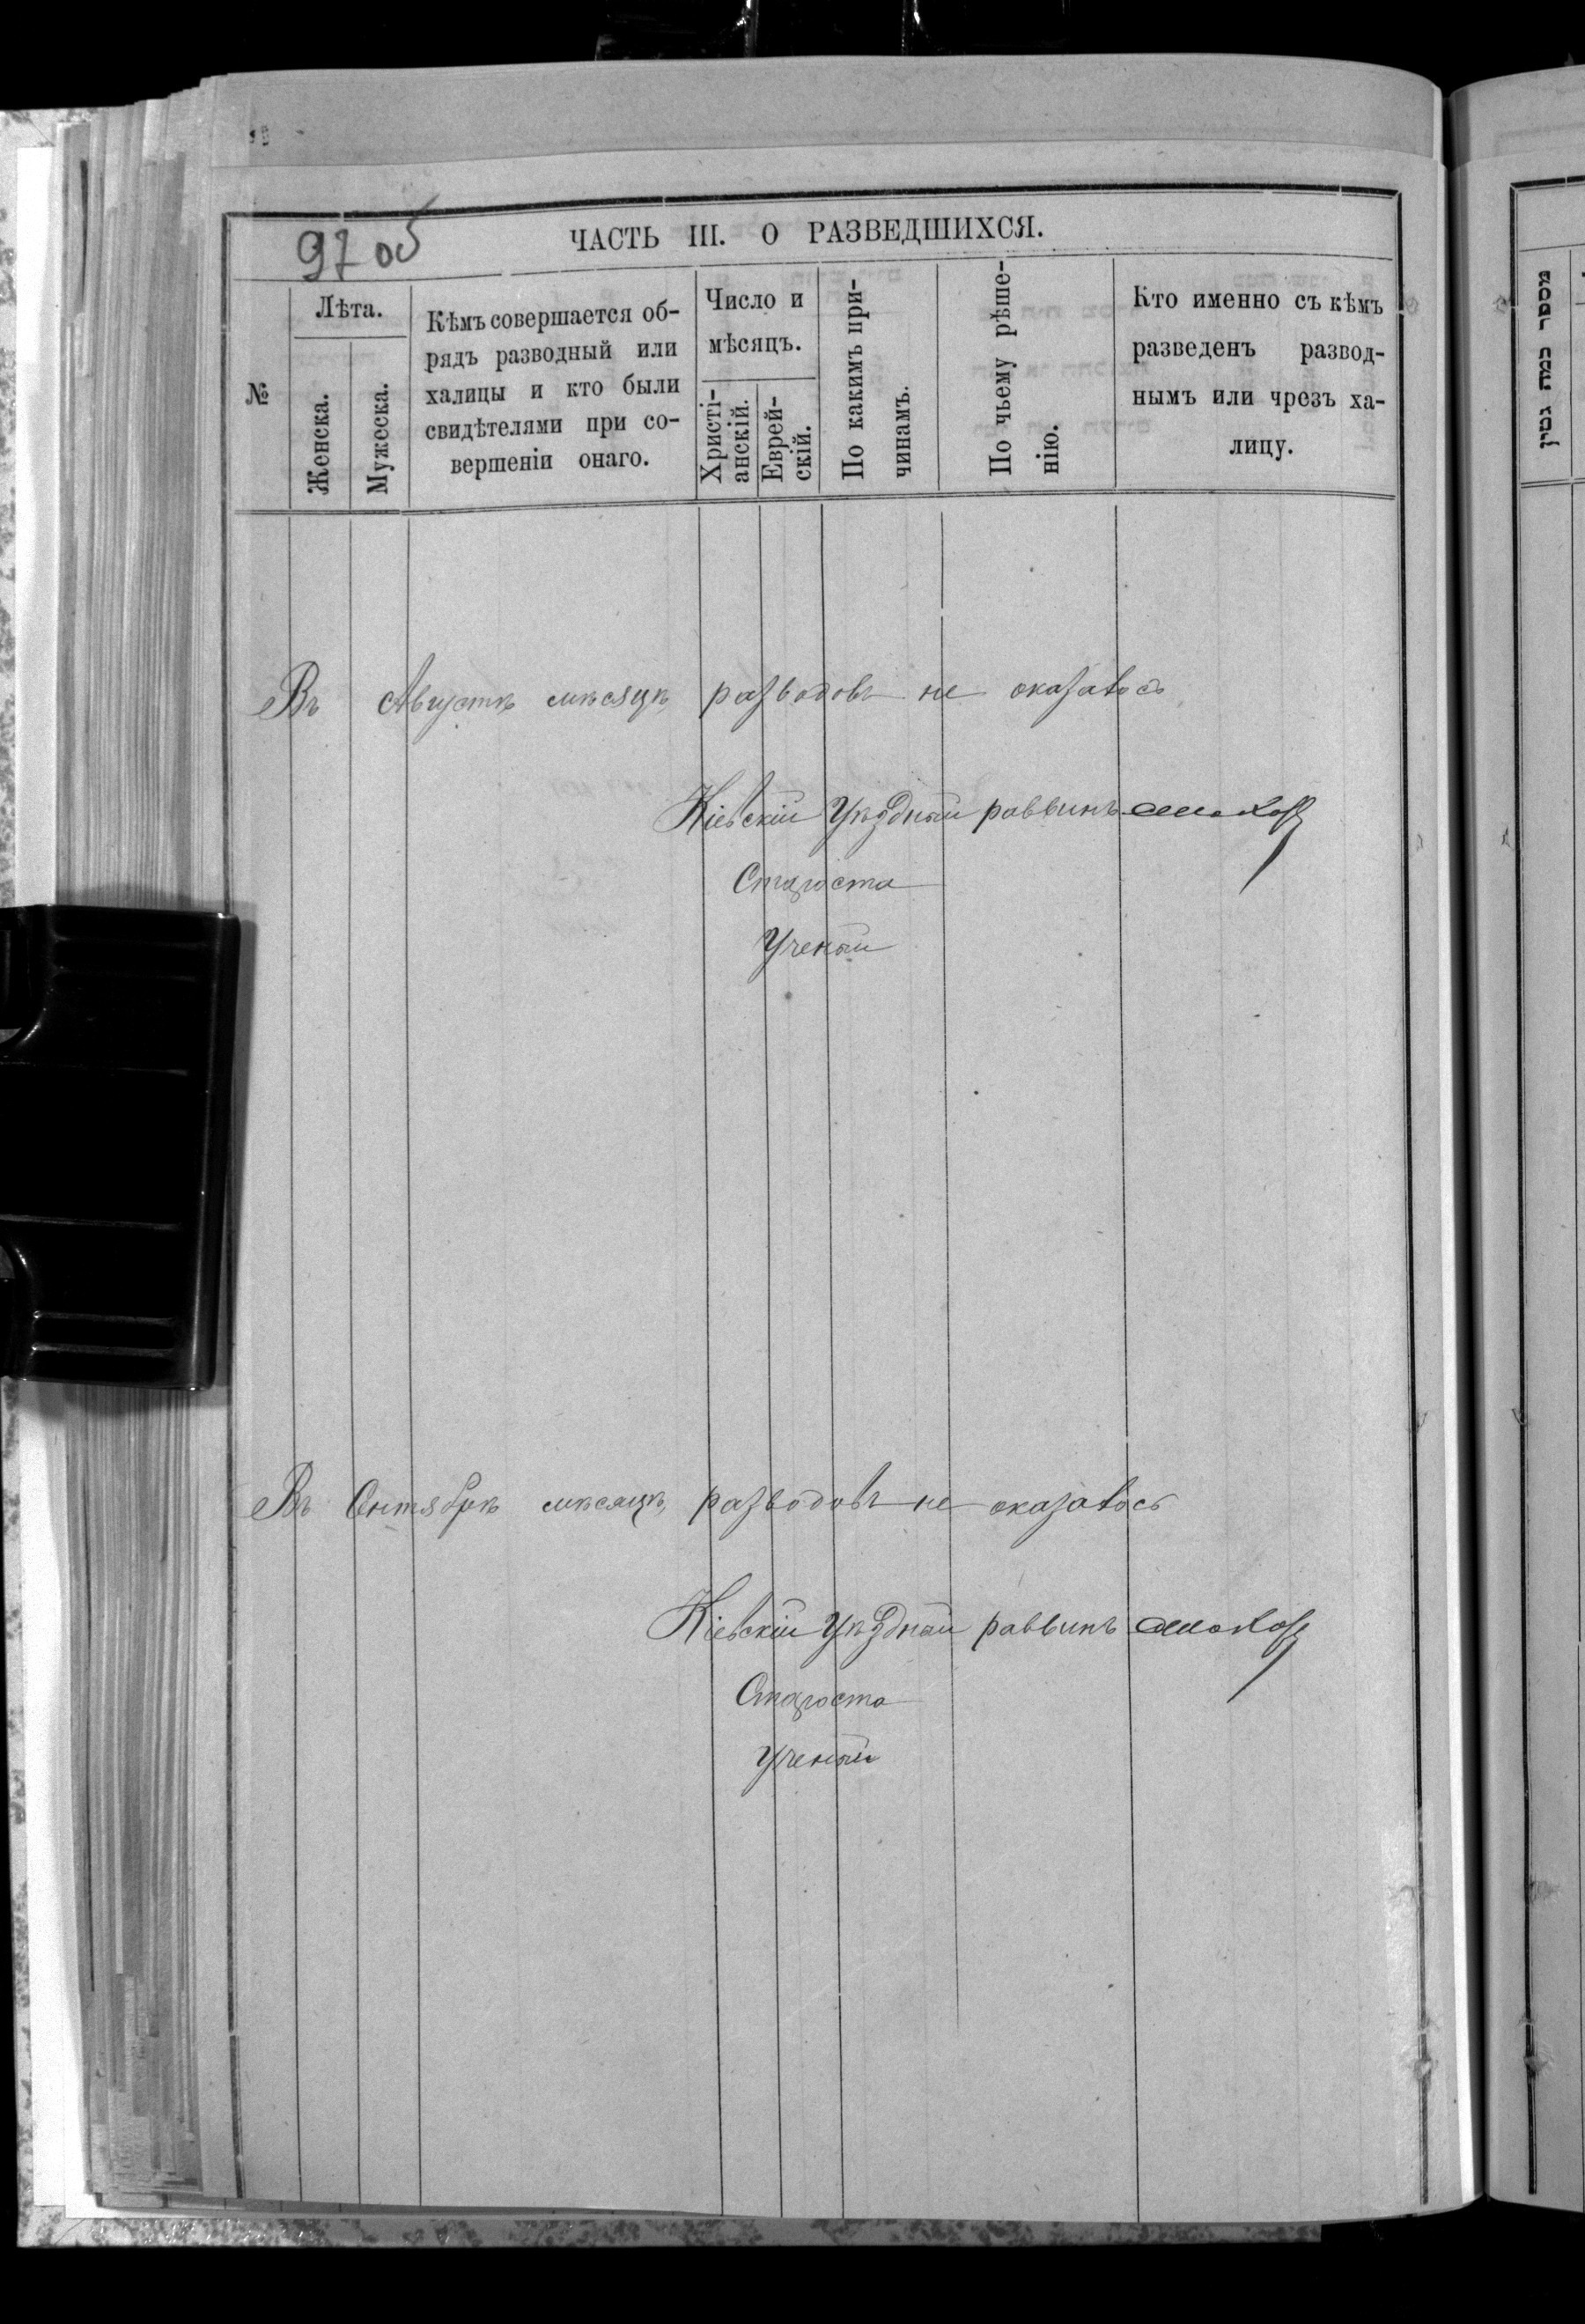 97 об
ЧАСТЬ III. О РАЗВЕДШИХСЯ.
№
Лѣта.
Женска.
Мужеска.
Кѣмъ совершается об-
рядъ разводный или
халицы и кто были
свидѣтелями при со-
вершеніи онаго.
Число и
мѣсяцъ.
Христі-
анскій.
Еврей-
скій.
По какимъ при-
чинамъ.
По чьему рѣше-
нію.
Кто именно съ кѣмъ
разведенъ развод-
нымъ или чрезъ ха-
лицу.
Въ Августѣ мѣсяцѣ, разводовъ не оказалось
Кіевскій Уѣздный раввинъ
Староста
Ученый
Въ Сентябрѣ мѣсяцѣ, разводовъ не оказалось
Кіевскій Уѣздный раввинъ
Староста
Ученый
מספר כמה גטין